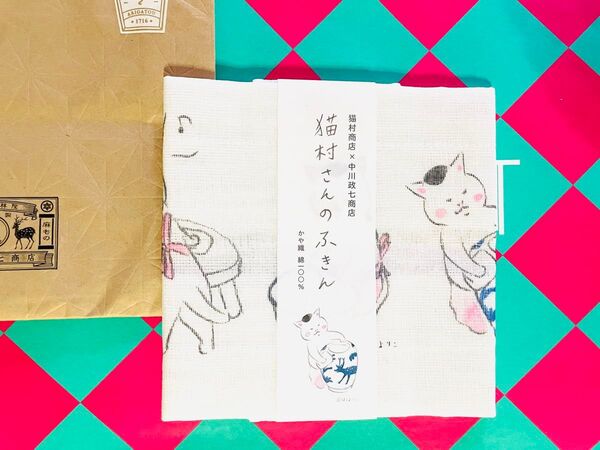 ARIGATOU
1716
麻もの
七商店
猫村商店×中川政七商店
猫村さんのふきん
かや織 綿一〇〇%
よりこ